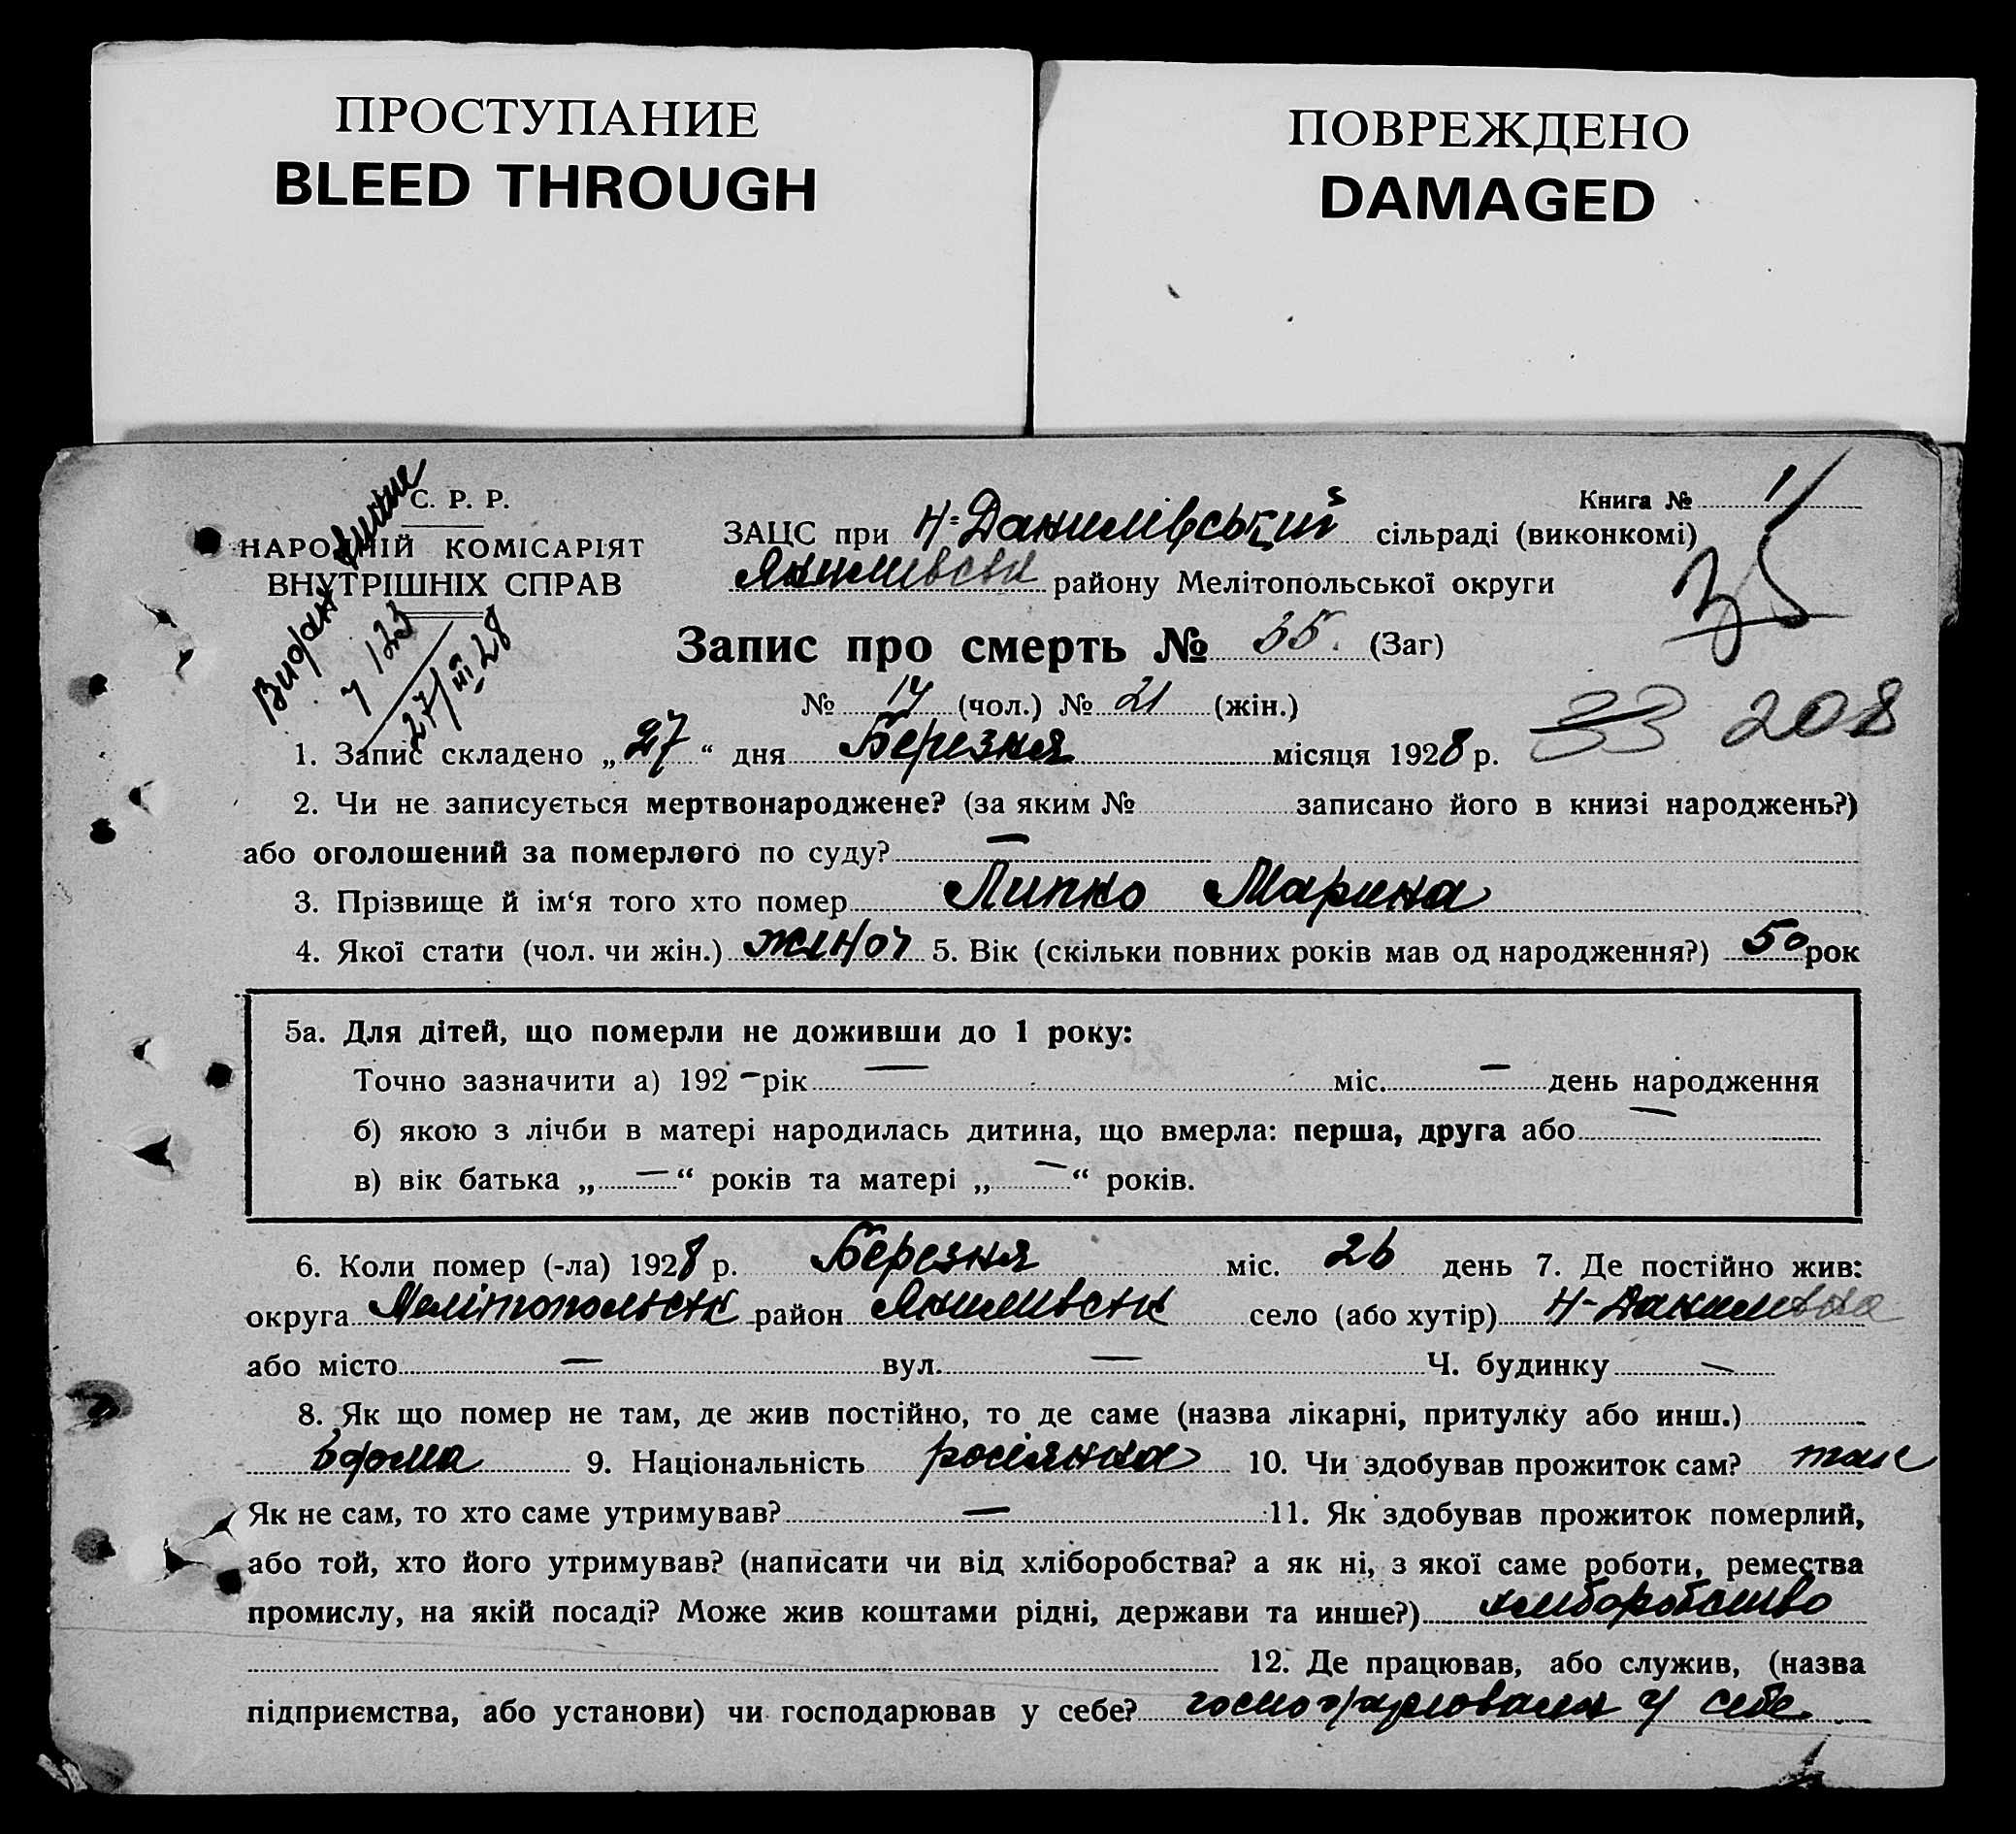 ПРОСТУПАНИЕ
BLEED THROUGH
ПОВРЕЖДЕНО
DAMAGED
С. Р. Р.
НАРОДНІЙ КОМІСАРІЯТ
ВНУТРІШНІХ СПРАВ
Видана
7 123
27/III 28
Книга № 1
ЗАЦС при Н-Данилівський сільраді (виконкомі)
Якимівськ району Мелітопольської округи
35
Запис про смерть № 35. (Заг)
№ 14 (чол.) № 21 (жін.)
33 208
1. Запис складено „27“ дня Березня місяця 1928 р.
2. Чи не записується мертвонароджене? (за яким № записано його в книзі народжень?)
або оголошений за померлого по суду? —
3. Прізвище й ім‘я того хто помер Липко Марина
4. Якої стати (чол. чи жін.) жіноч 5. Вік (скільки повних років мав од народження?) 50 рок
5а. Для дітей, що померли не доживши до 1 року:
Точно зазначити а) 192 – рік — міс. — день народження
б) якою з лічби в матері народилась дитина, що вмерла: перша, друга або —
в) вік батька „—“ років та матері „—“ років.
6. Коли помер (-ла) 1928 р. Березня міс. 26 день 7. Де постійно жив:
округа Мелітопольськ район Якимівськ село (або хутір) Н-Данилівка
або місто — вул. — Ч. будинку —
8. Як що помер не там, де жив постійно, то де саме (назва лікарні, притулку або инш.)
вдома 9. Національність росіянка 10. Чи здобував прожиток сам? так
Як не сам, то хто саме утримував? — 11. Як здобував прожиток померлий,
або той, хто його утримував? (написати чи від хліборобства? а як ні, з якої саме роботи, ремества
промислу, на якій посаді? Може жив коштами рідні, держави та инше?) хліборобство
12. Де працював, або служив, (назва
підприємства, або установи) чи господарював у себе? господарювала у себе